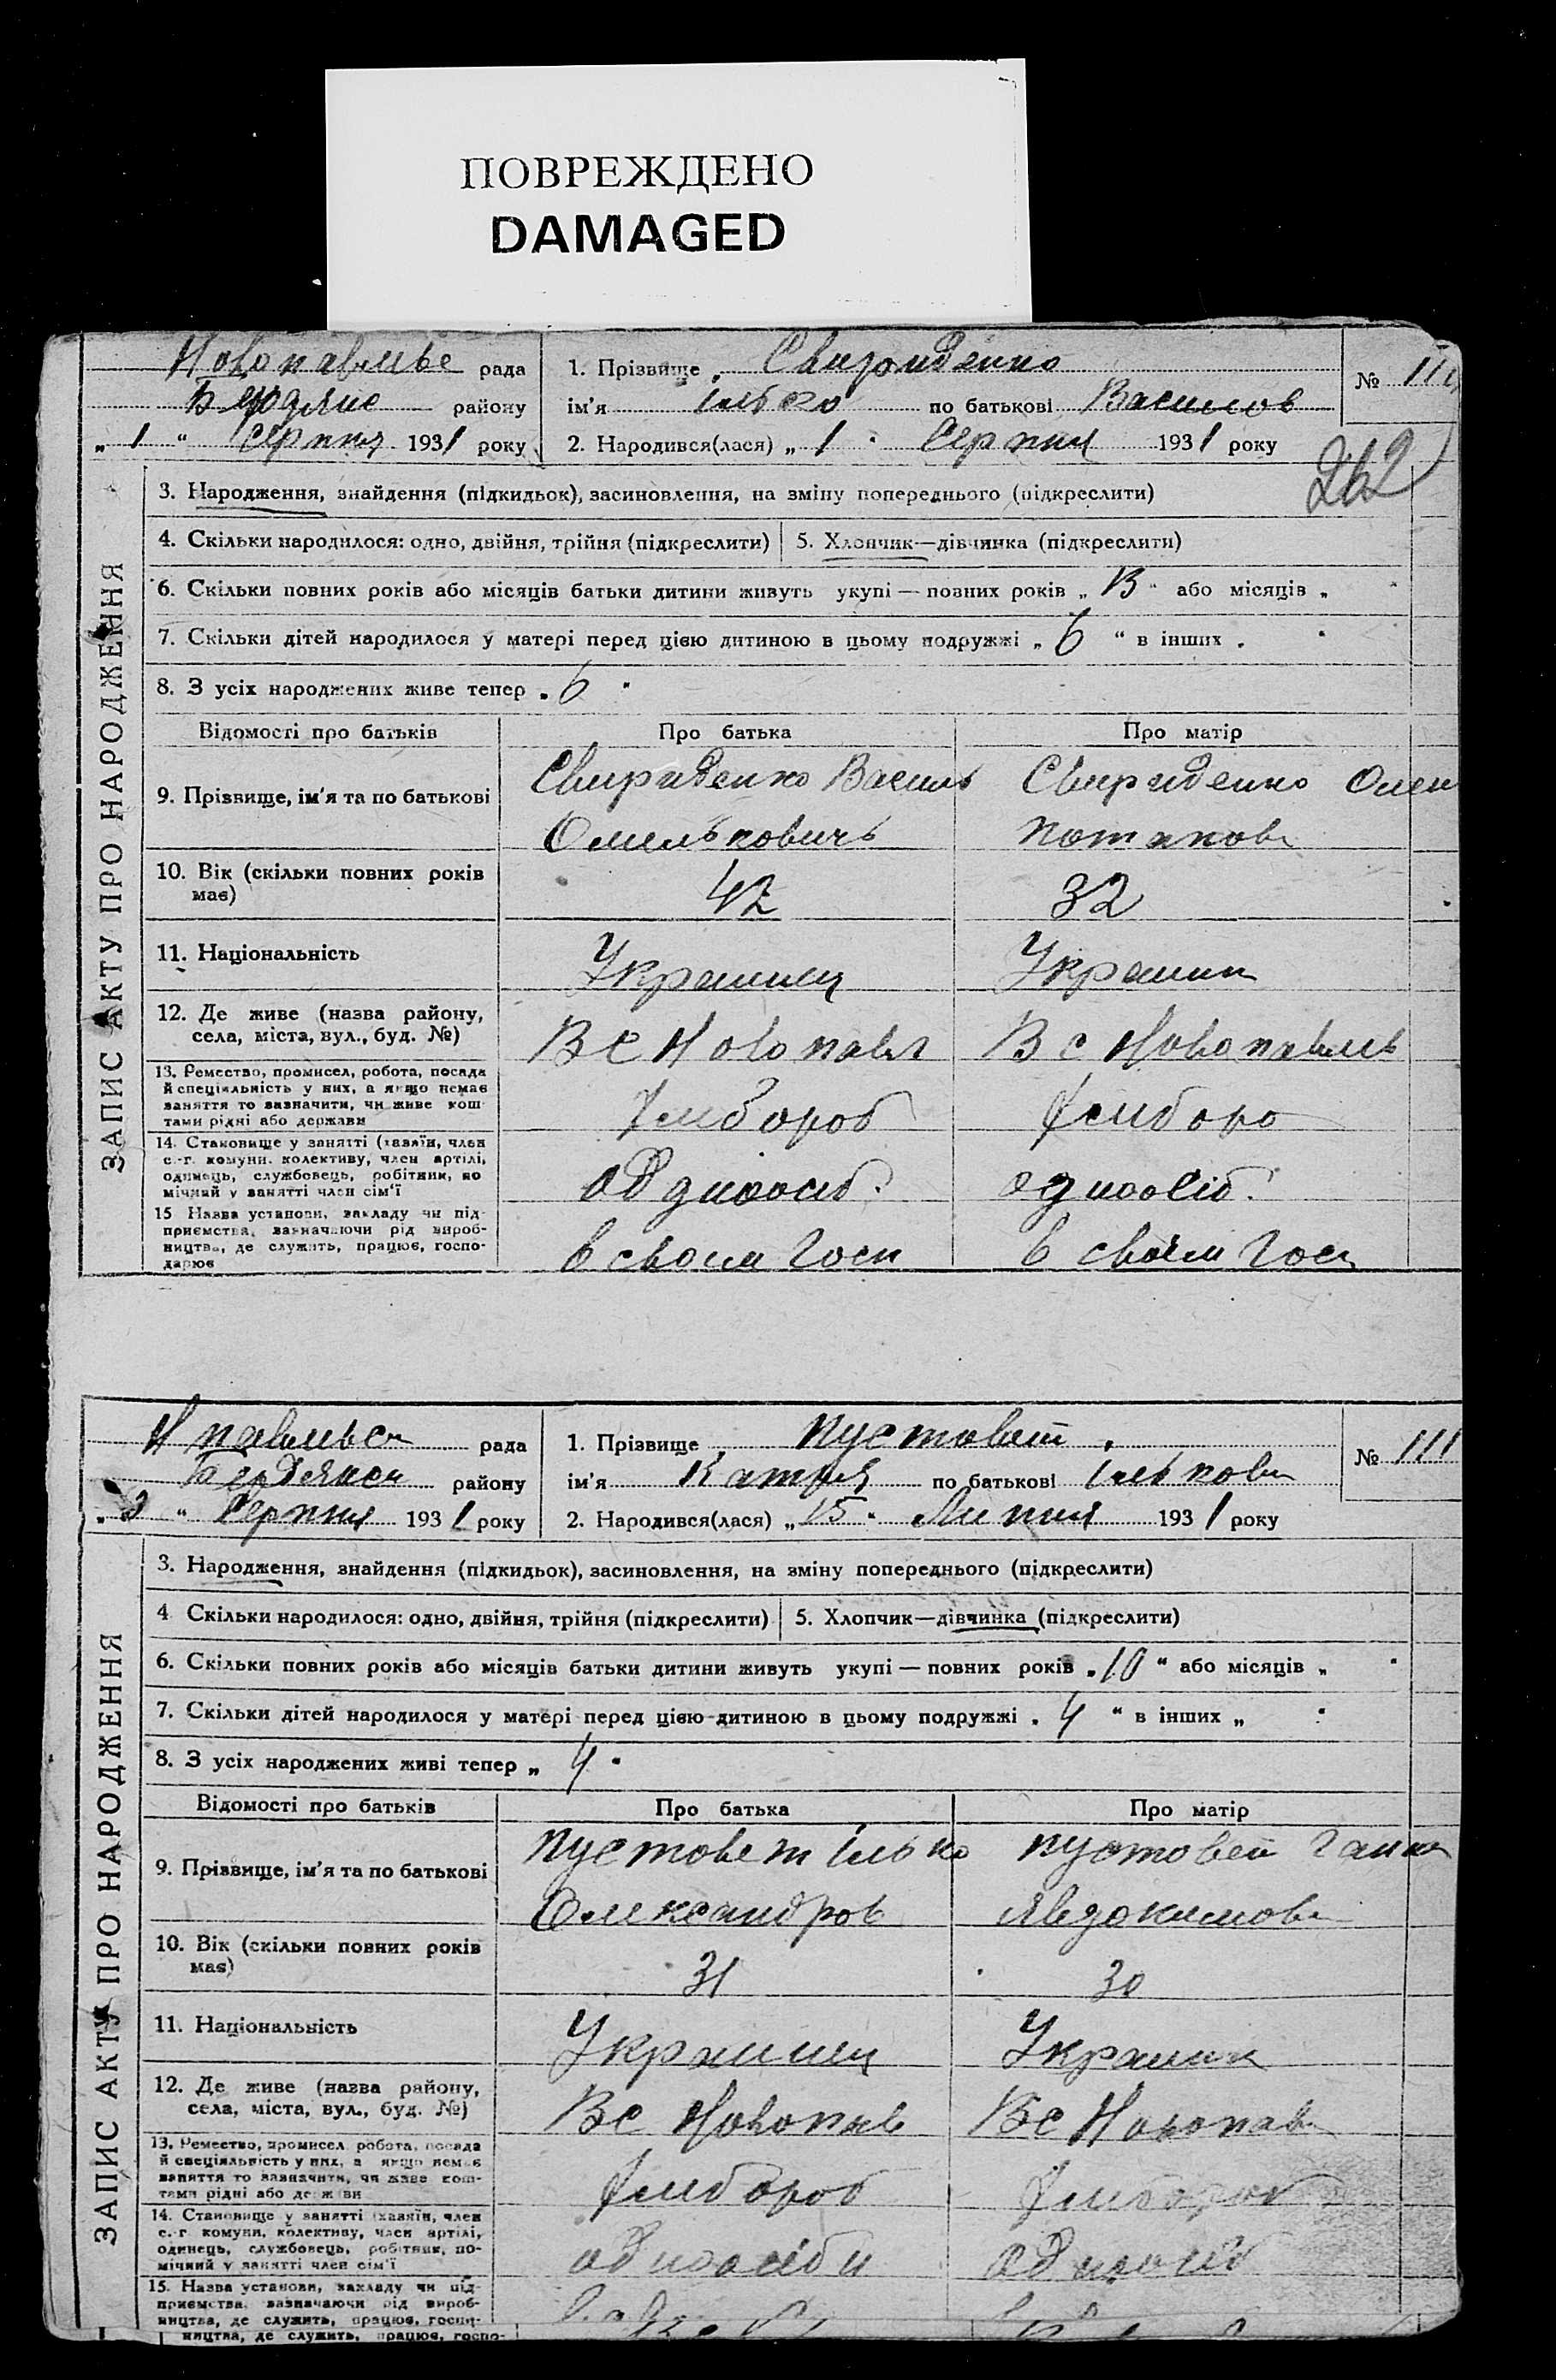 ПОВРЕЖДЕНО
DAMAGED
Новопавлівє рада
Бердянс району
„ 1 “ Серпня 1931 року
1. Прізвище Свириденко
ім'я Ілько по батькові Васильов
2. Народився(лася) „ 1 “ Серпня 1931 року
№ 11
262
ЗАПИС АКТУ ПРО НАРОДЖЕННЯ
3. Народження, знайдення (підкидьок), засиновлення, на зміну попереднього (підкреслити)
4. Скільки народилося: одно, двійня, трійня (підкреслити)
5. Хлопчик—дівчинка (підкреслити)
6. Скільки повних років або місяців батьки дитини живуть укупі — повних років „ 13 “ або місяців „ “
7. Скільки дітей народилося у матері перед цією дитиною в цьому подружжі „ 6 “ в інших „ “
8. З усіх народжених живе тепер „ 6 “
Відомості про батьків
Про батька
Про матір
9. Прізвище, ім'я та по батькові
Свириденко Василь
Омельковичь
Свириденко Олен
Потапов
10. Вік (скільки повних років
має)
42
32
11. Національність
Украинец
Украинк
12. Де живе (назва району,
села, міста, вул., буд. №)
В С Новопавл
В с Новопавль
13. Ремество, промисел, робота, посада
й спеціяльність у них, а якщо немає
заняття то зазначити, чи живе кош
тами рідні або держави
Хлибороб
Хлиборо
14. Становище у занятті (хазяїн, член
с.-г. комуни, колективу, член артілі,
одинець, службовець, робітник, по
мічний у занятті член сім'ї
одноосіб.
одноосіб.
15 Назва установи, закладу чи під-
приємства, зазначаючи рід вироб-
ництва, де служить, працює, госпо-
дарює
в своем Госп
в своєм Госп
Н павльск рада
Бердянск району
„ 3 “ Серпня 1931 року
1. Прізвище Пустовойт
ім'я Катря по батькові Ількова
2. Народився(лася) „ 15 “ Липня 1931 року
№ 111
ЗАПИС АКТУ ПРО НАРОДЖЕННЯ
3. Народження, знайдення (підкидьок), засиновлення, на зміну попереднього (підкреслити)
4 Скільки народилося: одно, двійня, трійня (підкреслити)
5. Хлопчик—дівчинка (підкреслити)
6. Скільки повних років або місяців батьки дитини живуть укупі — повних років „ 10 “ або місяців „ “
7. Скільки дітей народилося у матері перед цією дитиною в цьому подружжі „ 4 “ в інших „ “
8. З усіх народжених живі тепер „ 4 “
Відомості про батьків
Про батька
Про матір
9. Прізвище, ім'я та по батькові
Пустовет Ілько
Олександров
Пустовет Ганна
Явдокимов
10. Вік (скільки повних років
має)
31
30
11. Національність
Украинец
Украинк
12. Де живе (назва району,
села, міста, вул., буд. №)
В с Новопав
В с Новопав
13. Ремество, промисел, робота, посада
й спеціяльність у них, а якщо немає
заняття то зазначити, чи живе кош-
тами рідні або держави
Хлибороб
Хлибороб
14. Становище у занятті (хазяїн, член
с.-г. комуни, колективу, член артілі,
одинець, службовець, робітник, по-
мічний у занятті член сім'ї
одноосіби
одноосіб
15. Назва установи, закладу чи під-
приємства, зазначаючи рід вироб-
ництва, де служить, працює, госпо-
ництва, де служить, працює, госпо-